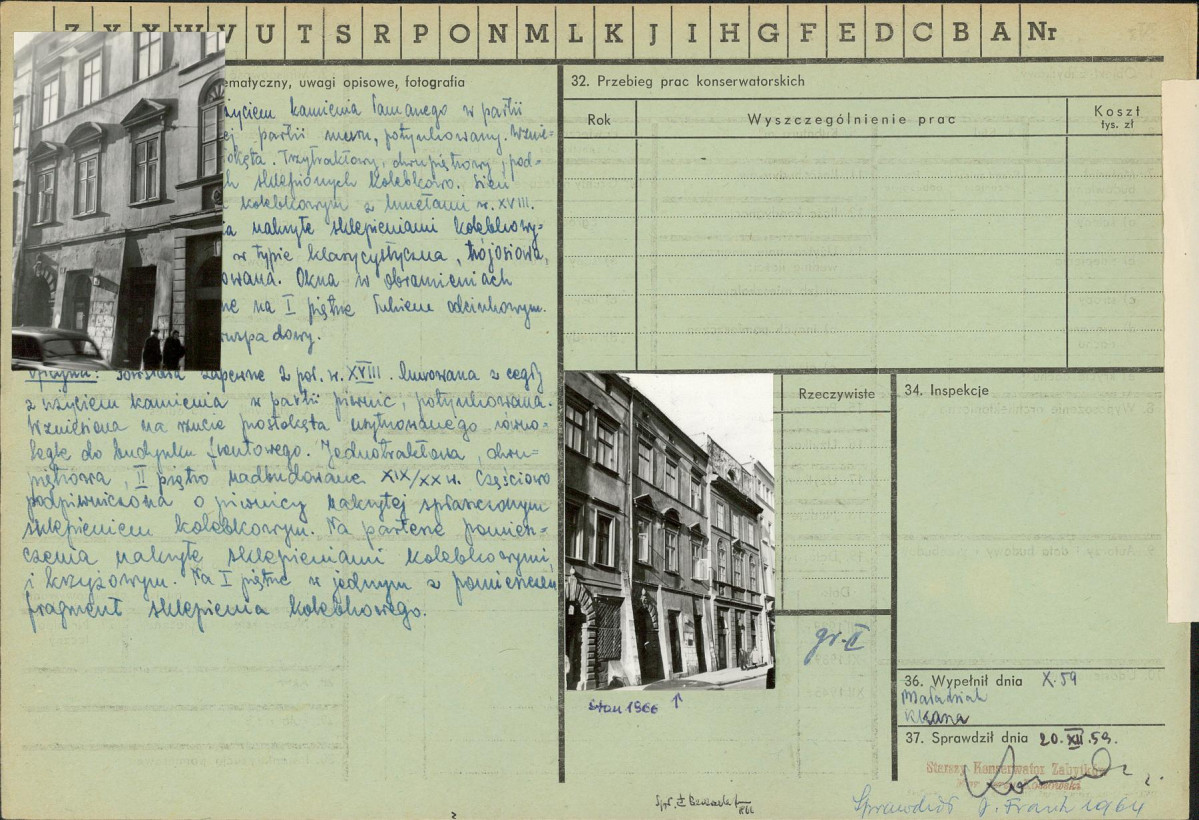 Z Y X W V U T S R P O N M L K J I H G F E D C B A Nr
ematyczny, uwagi opisowe, fotografia
życiem kamienia łamanego w partii
ej partii muru, potynkowany. Wznie-
okąta. Trzytraktowy, dwupiętrowy, pod-
h sklepionych kolebkowo. Sień
kolebkowym z lunetami w. XVIII.
ia nakryte sklepieniami kolebkowy-
w typie klasycystyczna, trójosiowa,
owana. Okna w obramieniach
ne na I piętrze odcinkowym.
dwuspadowy.
Oficyna: Powstała zapewne 2 poł. w. XVIII. Murowana z cegły
z użyciem kamienia w partii piwnic, potynkowana.
Wzniesiona na rzucie prostokąta usytuowanego równo-
legle do budynku frontowego. Jednotraktowa, dwu-
piętrowa, II piętro nadbudowane XIX/XX w. Częściowo
podpiwniczona o piwnicy nakrytej spłaszczonym
sklepieniem kolebkowym. Na parterze pomiesz-
czenia nakryte sklepieniami kolebkowymi
i krzyżowym. Na I piętrze w jednym z pomieszczeń
fragment sklepienia kolebkowego.
32. Przebieg prac konserwatorskich
Rok
Wyszczególnienie prac
Koszt
tys. zł
Rzeczywiste
gr. II
stan 1966 ↑
34. Inspekcje
36. Wypełnił dnia X.59
37. Sprawdził dnia 20.XII.59.
Starszy Konserwator Zabytków
Sprawdził J. Frank 1964